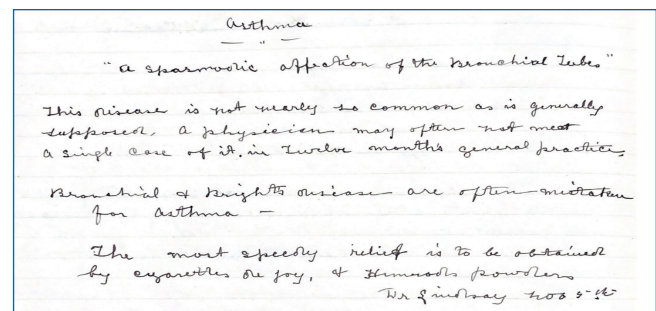 Asthma
"
"a sparmodic affection of the Bronchial Tubes"
This disease is not nearly so common as is generally
supposed. A physician may often not meet
a single case of it. in Twelve month's general practice.
Bronchial & Brights disease are often mistaken
for asthma -
The most speedy relief is to be obtained
by cigarettes de joy, & Himrods powders
Dr Lindsay Nov 5th